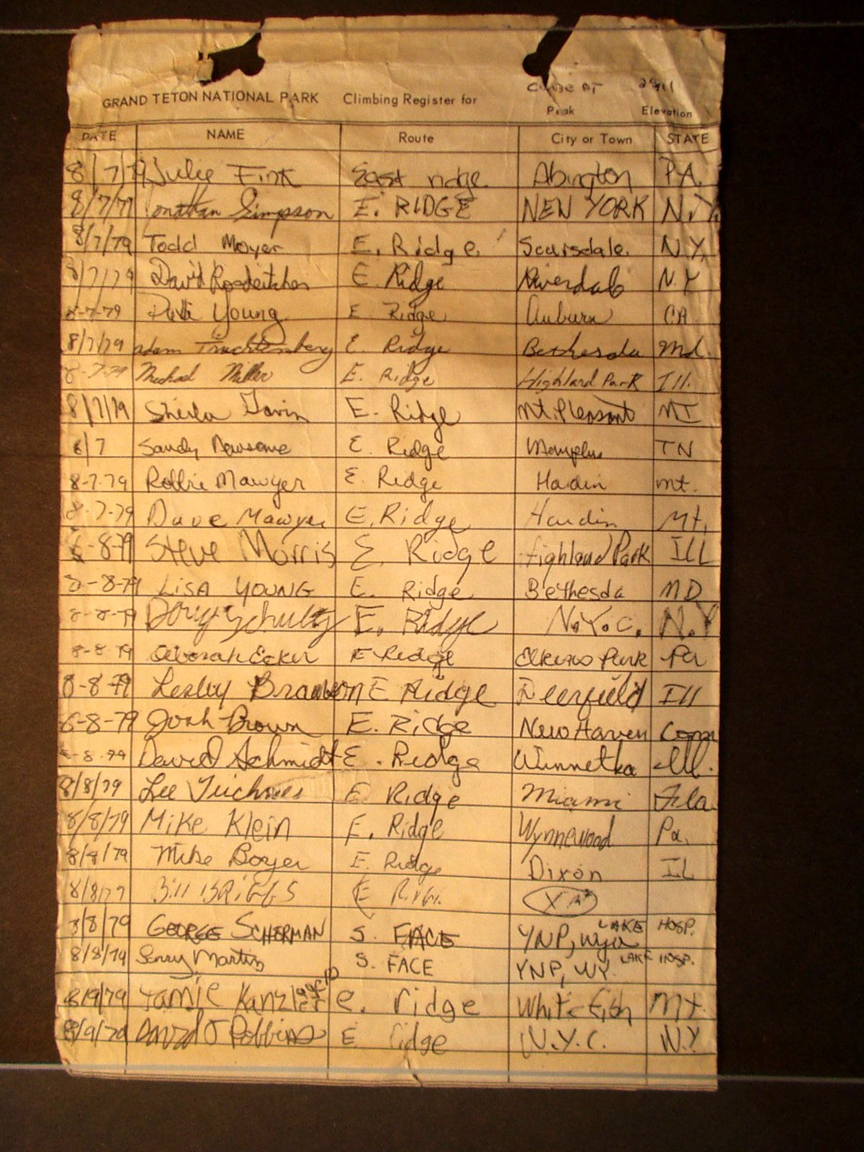 GRAND TETON NATIONAL PARK Climbing Register for Peak Elevation
DATE NAME Route City or Town STATE
8/7/79 Julie Fink East ridge Abington PA.
8/7/79 Jonathan Simpson E. RIDGE NEW YORK N.Y.
8/7/79 Todd Moyer E. Ridge Scarsdale. N.Y.
8/7/79 David E Ridge Riverdale N.Y
8-7-79 Young E Ridge Auburn CA
8/7/79 Adam E. Ridge Bethesda Md.
8-7-79 Michael Miller E. Ridge Highland Park Ill.
8/7/79 Sheila E. Ridge Mt. Pleasant MI
8/7 Sandy Newsome E. Ridge Memphis TN
8-7-79 Robbie Mawyer E. Ridge Hardin mt.
8-7-79 Dave Mawyer E. Ridge Hardin Mt.
8-8-79 Steve Morris E. Ridge Highland Park ILL
8-8-79 LISA YOUNG E. Ridge Bethesda MD
8-8-79 Doug Schultz E. Ridge N.Y.C. N.Y
8-8-79 Deborah Ecker E Ridge Elkins Park Pa
8-8-79 Lesley E Ridge Deerfield Ill
8-8-79 Josh Brown E. Ridge New Haven Conn
8-8-79 David Schmidt E. Ridge Winnetka Ill.
8/8/79 Lee E Ridge Miami Fla
8/8/79 Mike Klein E. Ridge Wynnewood Pa.
8/8/79 Mike Boyer E. Ridge Dixon IL
8/8/79 Bill BRIGGS E
8/8/79 GEORGE SCHERMAN S. FACE YNP, Wyo LAKE HOSP.
8/8/79 Martin S. FACE YNP, WY. LAKE HOSP.
8/9/79 Jamie Kanzler e. ridge White fish MT
8/9/79 David J Robbins E ridge N.Y.C. N.Y.